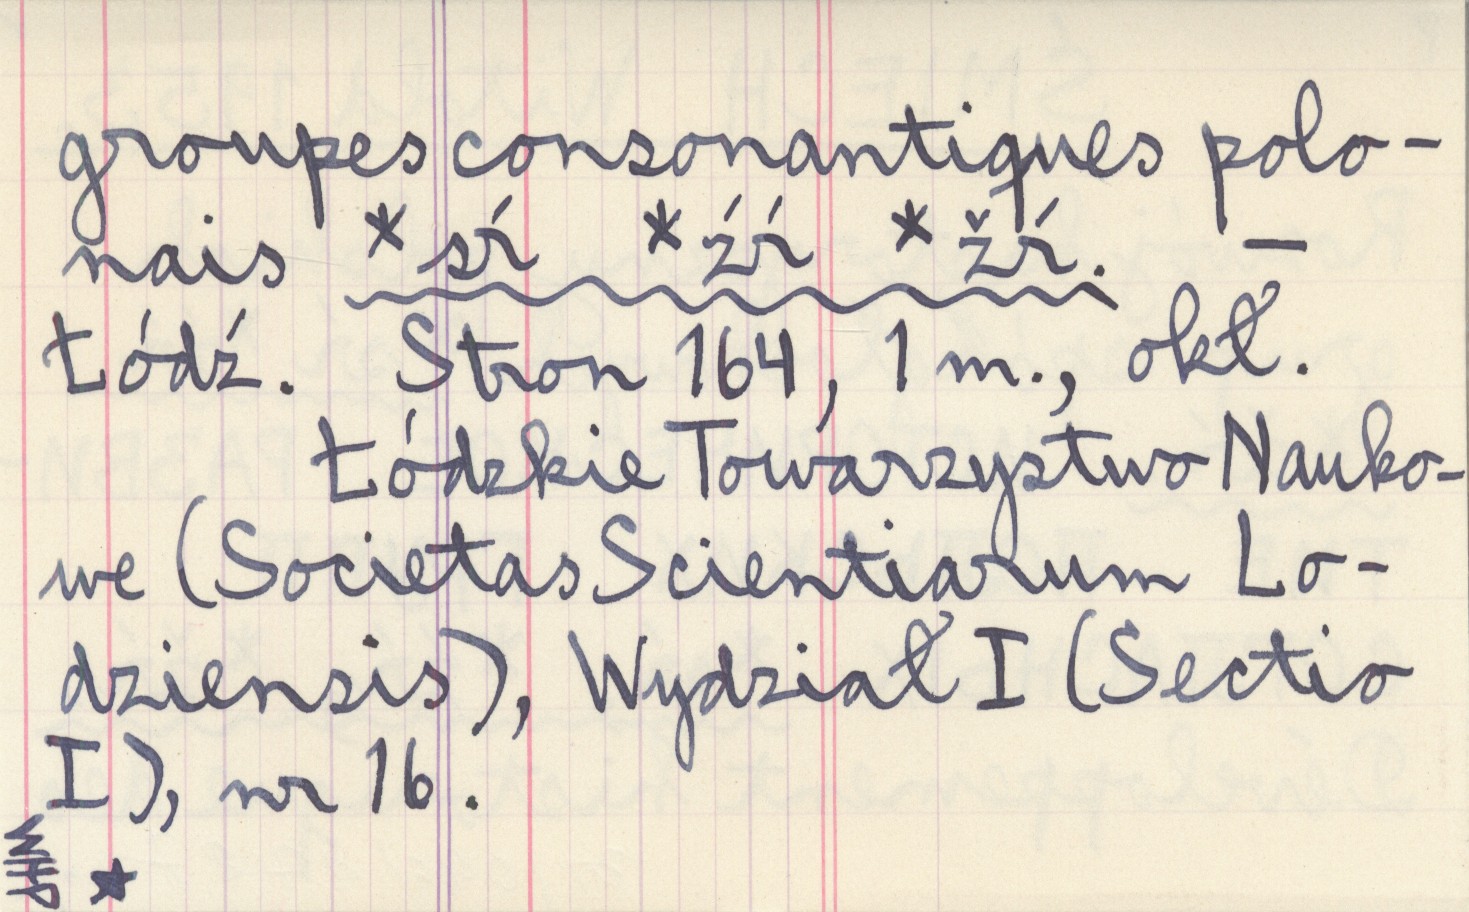 groupes consonantiques polo-
nais *sŕ *źŕ *žŕ. —
Łódź. Stron 164, 1 m., okł.
Łódzkie Towarzystwo Nauko-
we (Societas Scientiarum Lo-
dziensis), Wydział I (Sectio
I), nr 16.
WHP